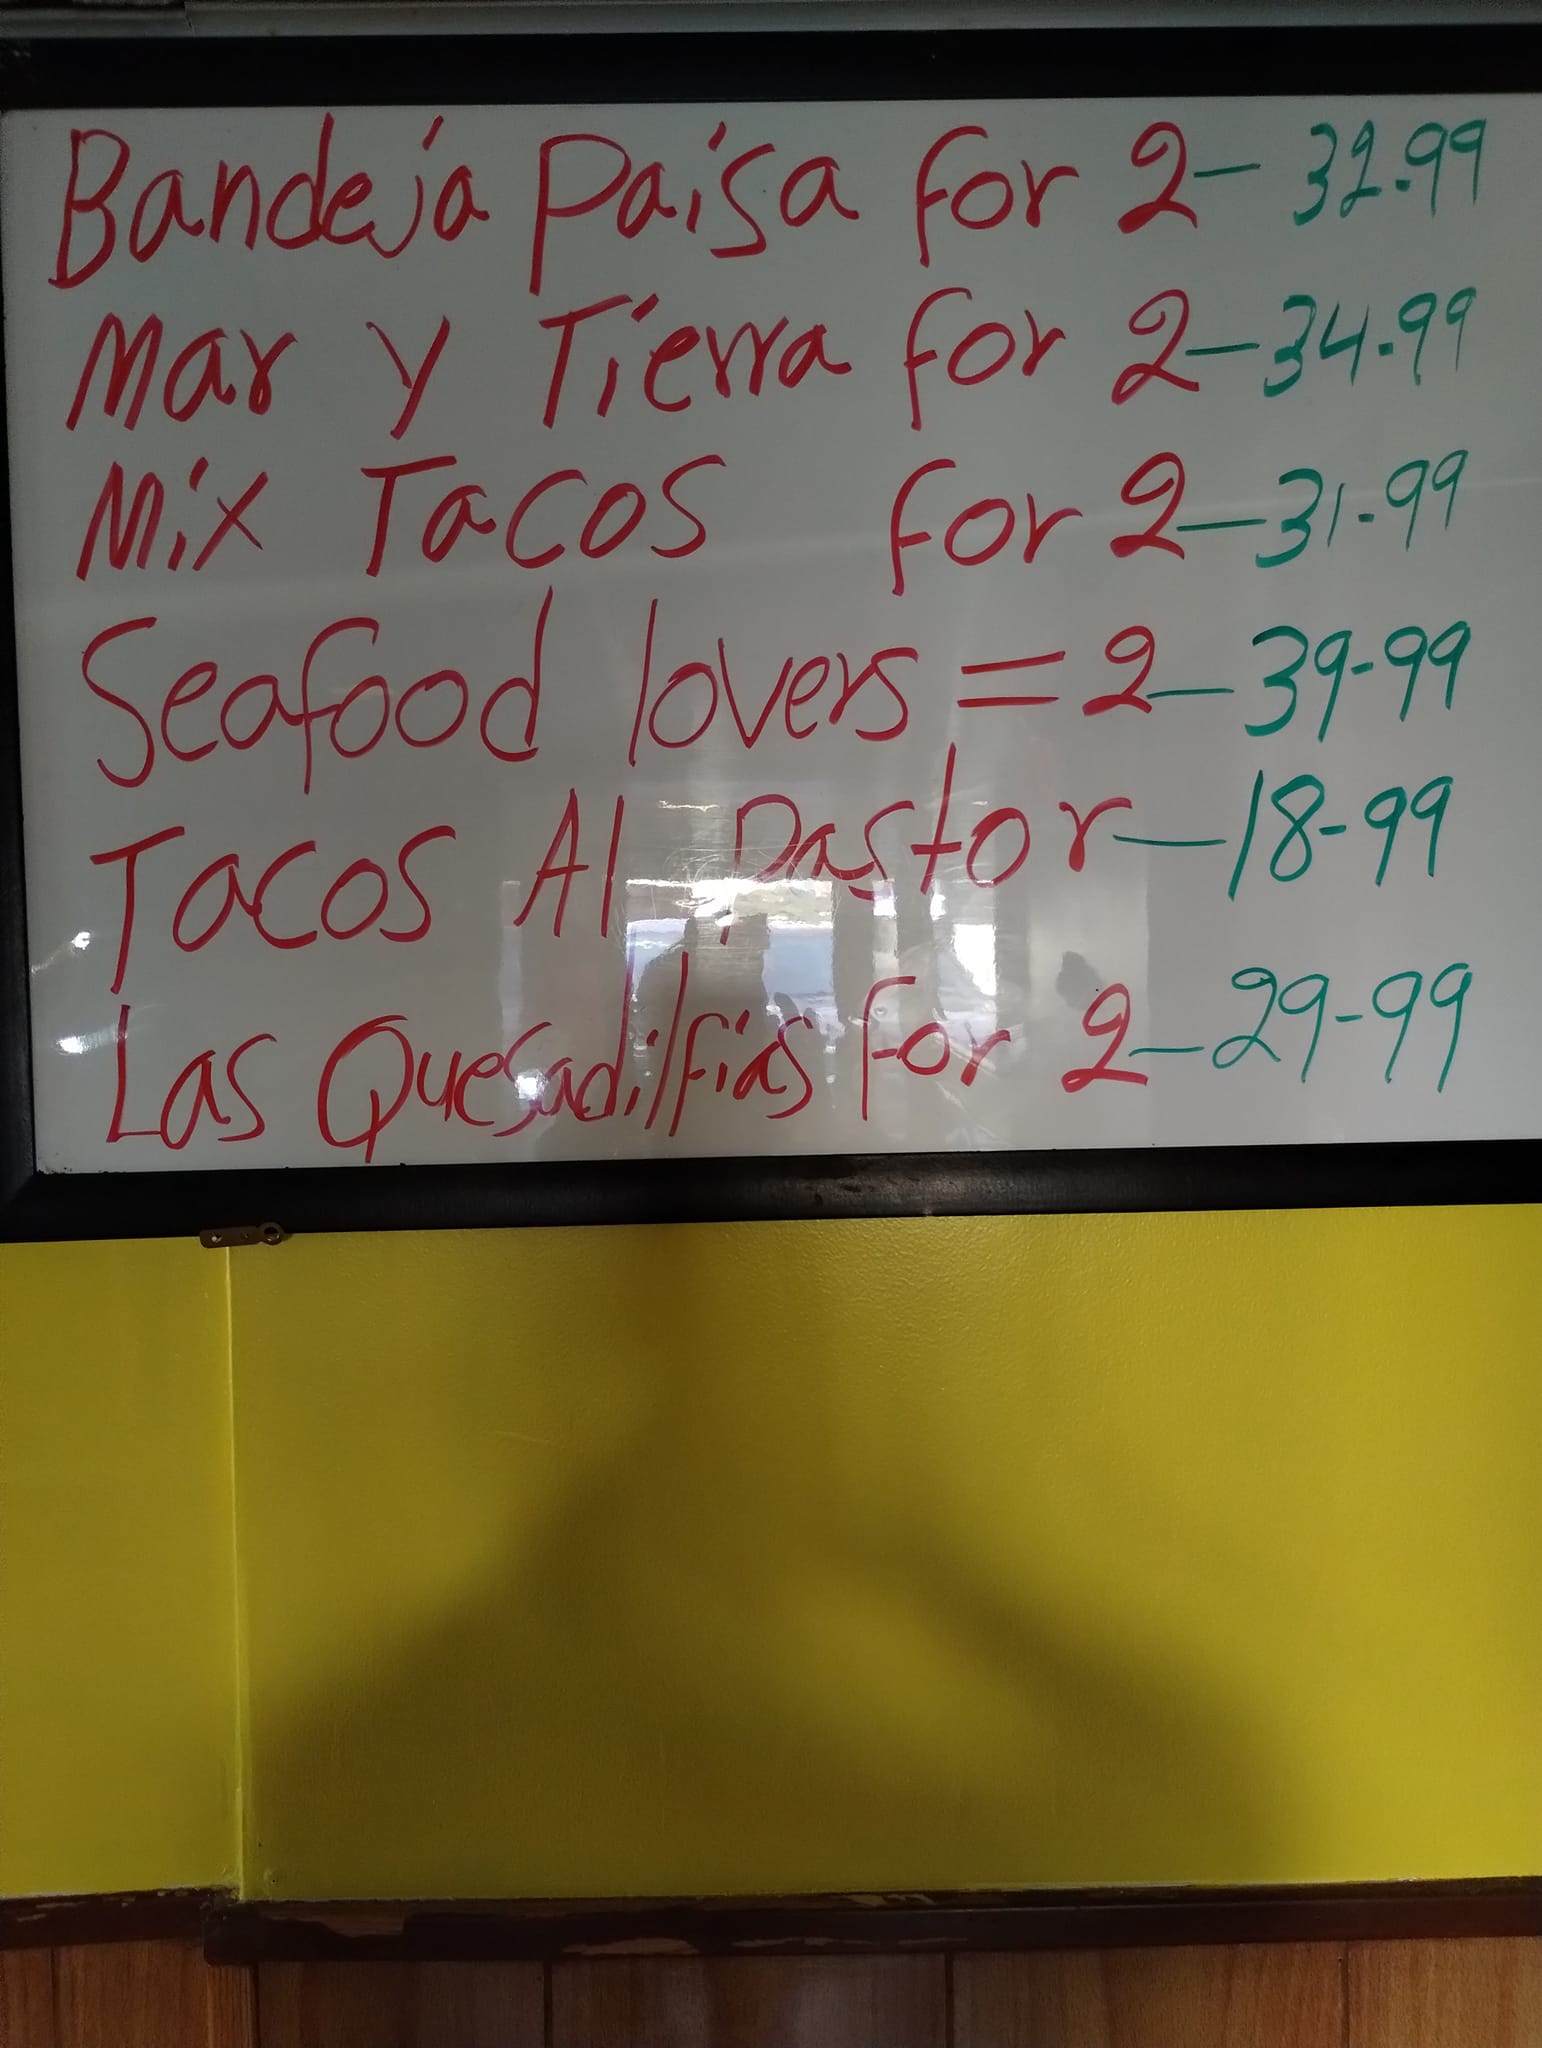 Bandeja Paisa for 2 - 32.99
Mar y Tierra for 2 - 34.99
Mix Tacos for 2 - 31.99
Seafood lovers = 2 - 39-99
Tacos Al Pastor - 18-99
Las Quesadillfias for 2 - 29-99